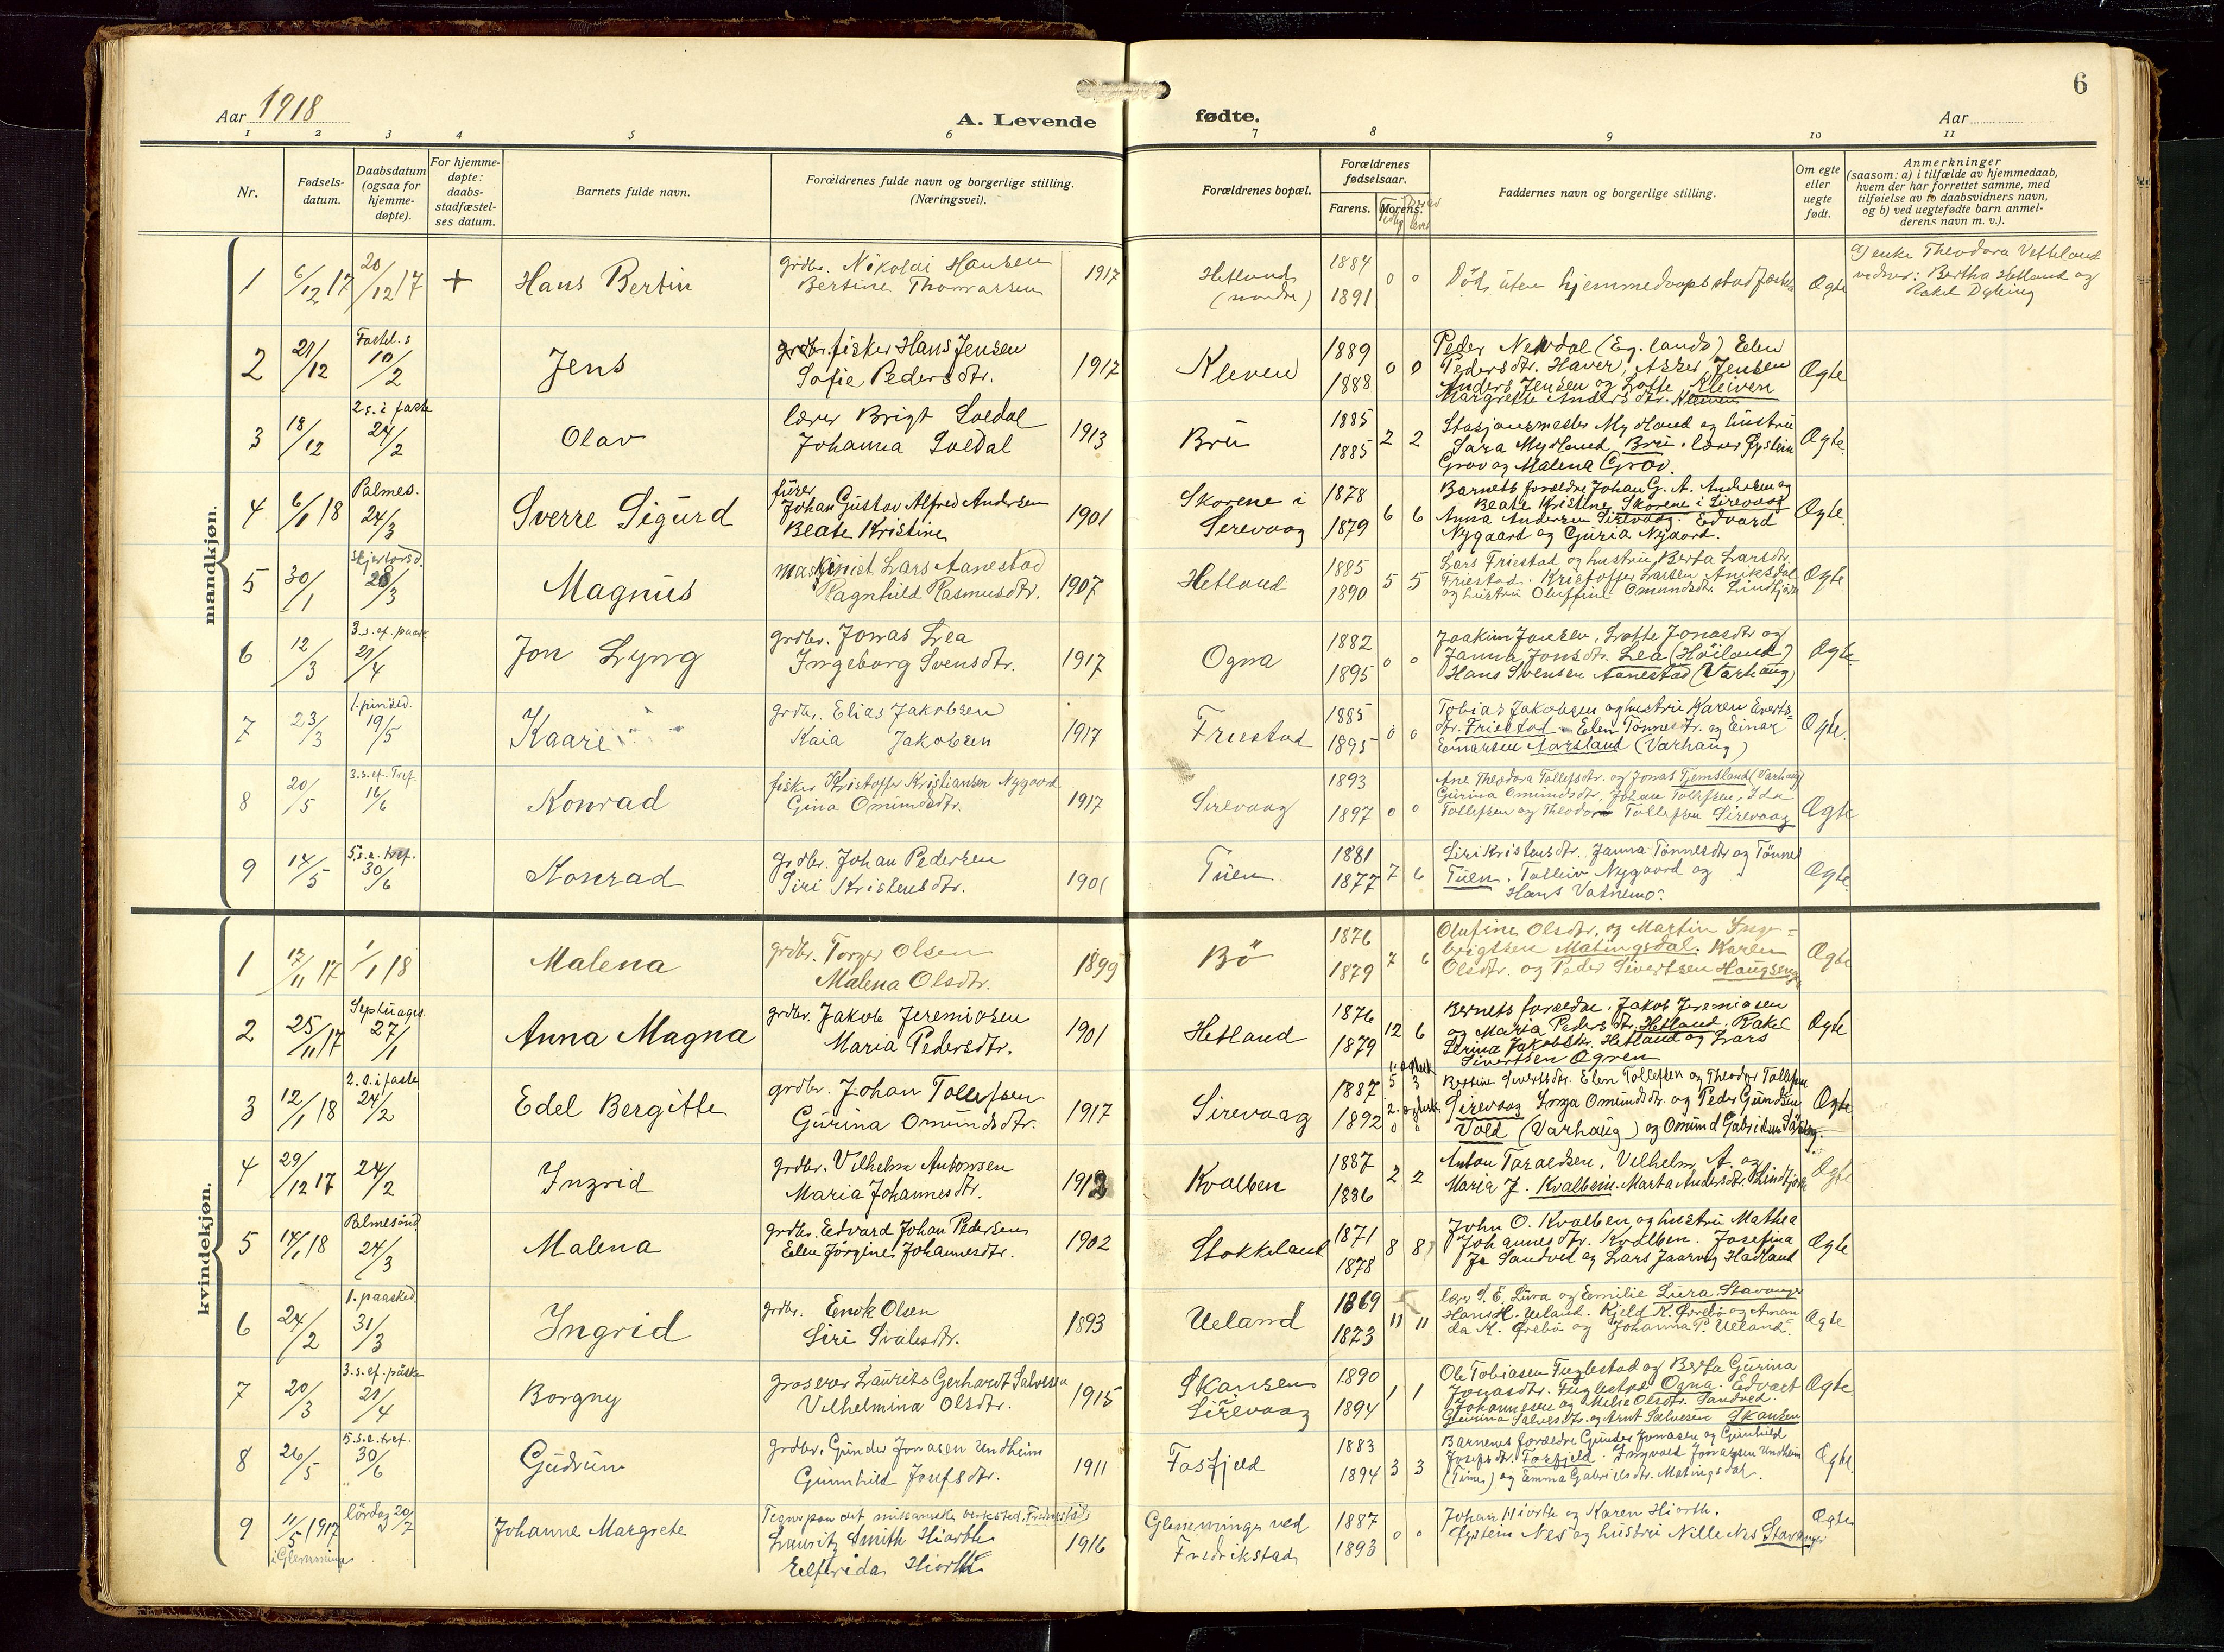 6
Aar 1918
A. Levende fødte.
Aar
1 2 3 4 5 6 7 8 9 10 11
Nr.
Fødsels-
datum.
Daabsdatum
(ogsaa for
hjemme-
døpte).
For hjemme-
døpte:
daabs-
stadfæstel-
ses datum.
Barnets fulde navn.
Forældrenes fulde navn og borgerlige stilling.
(Næringsvei).
Forældrenes bopæl.
Forældrenes
fødselsaar.
Farens.
Morens.
Faddernes navn og borgerlige stilling.
Om egte
eller
uegte
født.
Anmerkninger
(saasom: a) i tilfælde av hjemmedaab,
hvem der har forrettet samme, med
tilføielse av to daabsvidners navn,
og b) ved uegtefødte barn anmel-
derens navn m. v.).
mandkjøn.
1 6/12 17 20/12 17 + Hans Bertin
grdbr. Nikolai Hansen
Bertine Thomassen 1917
Hetland
(nordre)
1884
1891
0 0
Død uten hjemmedaapsstadfæstelse
Ægte
Enke Theodora Vetteland
vidner: Bertha Hetland og
Rakel Dyking
2 21/12 Fastel. s
10/2
Jens
grdbr. fisker Hans Jensen
Sofie Pedersdtr. 1917
Kleven
1889
1888
0 0
Peder Nevdal (Eg. lands) Elen
Pedersdtr. Haver, Asser Jensen
Anders Jensen og Lotte Kleiven
Margrethe Andersdtr. Kleiven
Ægte
3 18/12 2. s. i faste
24/2
Olav
lærer Brigt Soldal
Johanna Soldal 1913
Bru
1885
1885
2 2
Stasjonsmester Mydland og hustru
Sara Mydland Bru. lærer Øystein
Grov og Malena Grov.
Ægte
4 6/1 18 Palmes.
24/3
Sverre Sigurd
fürer
Johan Gustav Alfred Andersen
Beate Kristine 1901
Skorene i
Sirevaag
1878
1879
6 6
Barnets forældre Johan G. A. Andersen og
Beate Kristine Skorene i Sirevaag
Anna Andersen Sirevaag. Edvard
Nygaard og Guria Nygaard.
Ægte.
5 30/1 Skjærtorsd.
28/3
Magnus
maskinist Lars Aanestad
Ragnhild Rasmusdtr. 1907
Hetland
1885
1890
5 5
Lars Friestad og hustru Berta Larsdtr.
Friestad. Kristoffer Larsen Aniksdal
og hustru Oluffine Omundsdtr. Lindtjörn
Ægte
6 12/3 3. s. ef. paaske
21/4
Jon Lyng
grdbr. Jonas Lea
Ingeborg Svensdtr. 1917
Ogna
1882
1895
0 0
Joakim Jonsen, Lotte Jonasdtr og
Janna Jonsdtr. Lea (Høiland)
Hans Svensen Aanestad (Varhaug)
Ægte
7 23/3 1. pinsed.
19/5
Kaare
grdbr. Elias Jakobsen
Kaia Jakobsen 1917
Friestad
1885
1895
0 0
Tobias Jakobsen og hustru Karen Everts-
dtr. Friestad - Elen Tønnesdtr. og Einar
Einarsen Aarsland (Varhaug)
Ægte.
8 20/5 3. s. ef. Tref.
16/6
Konrad
fisker Kristoffer Kristiansen Nygaard
Gina Omundsdtr. 1917
Sirevaag
1893
1897
0 0
Ane Theodora Tollefsdtr. og Jonas Tjemsland (Varhaug)
Gurina Omundsdtr, Johan Tollefsen, Ida
Tollefsen og Theodor Tollefsen Sirevaag
Ægte
9 14/5 5. s. e. tref.
30/6
Konrad
grdbr. Johan Pedersen
Siri Kristensdtr. 1901
Tuen
1881
1877
7 6
Siri Kristensdtr. Janna Tønnesdtr og Tønnes
Tuen. Tolleiv Nygaard og
Hans Vatnemo.
Ægte.
kvindekjøn.
1 17/11 17 1/1 18
Malena
grdbr. Torger Olsen
Malena Olsdtr. 1899
Bö
1876
1879
7 6
Olufine Olsdtr. og Martin Inge-
brigtsen Matingsdal. Karen
Olsdtr. og Peder Sivertsen Haugseng
Ægte
2 25/11 17 Septuages
27/1
Anna Magna
grdbr. Jakob Jeremiasen
Maria Pedersdtr. 1901
Hetland
1876
1879
12 6
Bernets forældre. Jakob Jeremiasen
og Maria Pedersdtr. Hetland. Rakel
Serina Jakobsdtr. Hetland og Lars
Sivertsen Ogren
Ægte
3 12/1 18 2. s. i faste
24/2
Edel Bergitte
grdbr. Johan Tollefsen
Gurina Omundsdtr. 1917
Sirevaag
1887
1892
5 3
0 0
Bertine Sivertsdtr. Elen Tollefsen og Theodor Tollefsen
Sirevaag Inga Omundsdtr. og Peder Gundsen
Vold (Varhaug) og Omund Gabrielsen
Ægte
4 29/12 17 24/2
Ingrid
grdbr. Vilhelm Antonsen
Maria Johannesdtr. 1912
Kvalben
1887
1886
2 2
Anton Taraldsen, Vilhelm A. og
Maria J. Kvalbein. Marta Andersdtr. Lindtjörn
Ægte
5 14/1 18 Palmesönd
24/3
Malena
grdbr. Edvard Johan Pedersen
Elen Jörgine Johannesdtr. 1902
Stokkeland
1871
1878
8 8
John O. Kvalben og hustru Mathea
Johannesdtr. Kvalben. Josefina
J. Sandved og Lars Jaarvig Hadland
Ægte
6 24/2 1. paasked.
31/3
Ingrid
grdbr. Enok Olsen
Siri Sivalesdtr. 1893
Ueland
1869
1873
11 11
lærer S. E. Lura og Emilie Lura. Stavanger
Hans H. Ueland. Kjeld K. Ørebö og Aman-
da K. Ørebö og Johanna P. Ueland.
Ægte
7 20/3 3. s. ef. påske
21/4
Borgny
groserer Laurits Gerhardt Salvesen
Vilhelmina Olsdtr. 1915
Skansen
Sirevaag
1890
1894
1 1
Ole Tobiasen Fuglestad og Berta Gurina
Jonasdtr. Fuglestad Ogna. Edvart
Johannesen og Milie Olsdtr. Sandved.
Gurina Salvesdtr. og Arnt Salvesen Skansen
Ægte.
8 26/5 5. s. e. tref.
30/6
Gudrun
grdbr. Gunder Jonasen Undheim
Gunnhild Josefsdtr. 1911
Fosfjeld
1883
1894
3 3
Barnenes forældre Gunder Jonasen og Gunhild
Josefsdtr. Fosfjeld. Ingvald Jonassen Undheim
(Time) og Emma Gabrielsdtr. Matingsdal.
Ægte.
9 11/5 1917
i Glemminge
lördag 20/7
Johanne Margrete
Tegner paa det mekaniske verksted. Fredrikstad
Lauritz Smith Hiorth
Elfrida Hiorth 1916
Glemminge ved
Fredrikstad
1887
1893
0 0
Johan Hiorth og Karen Hiorth.
Øystein Nes og hustru Nille Nes Stavanger
Ægte